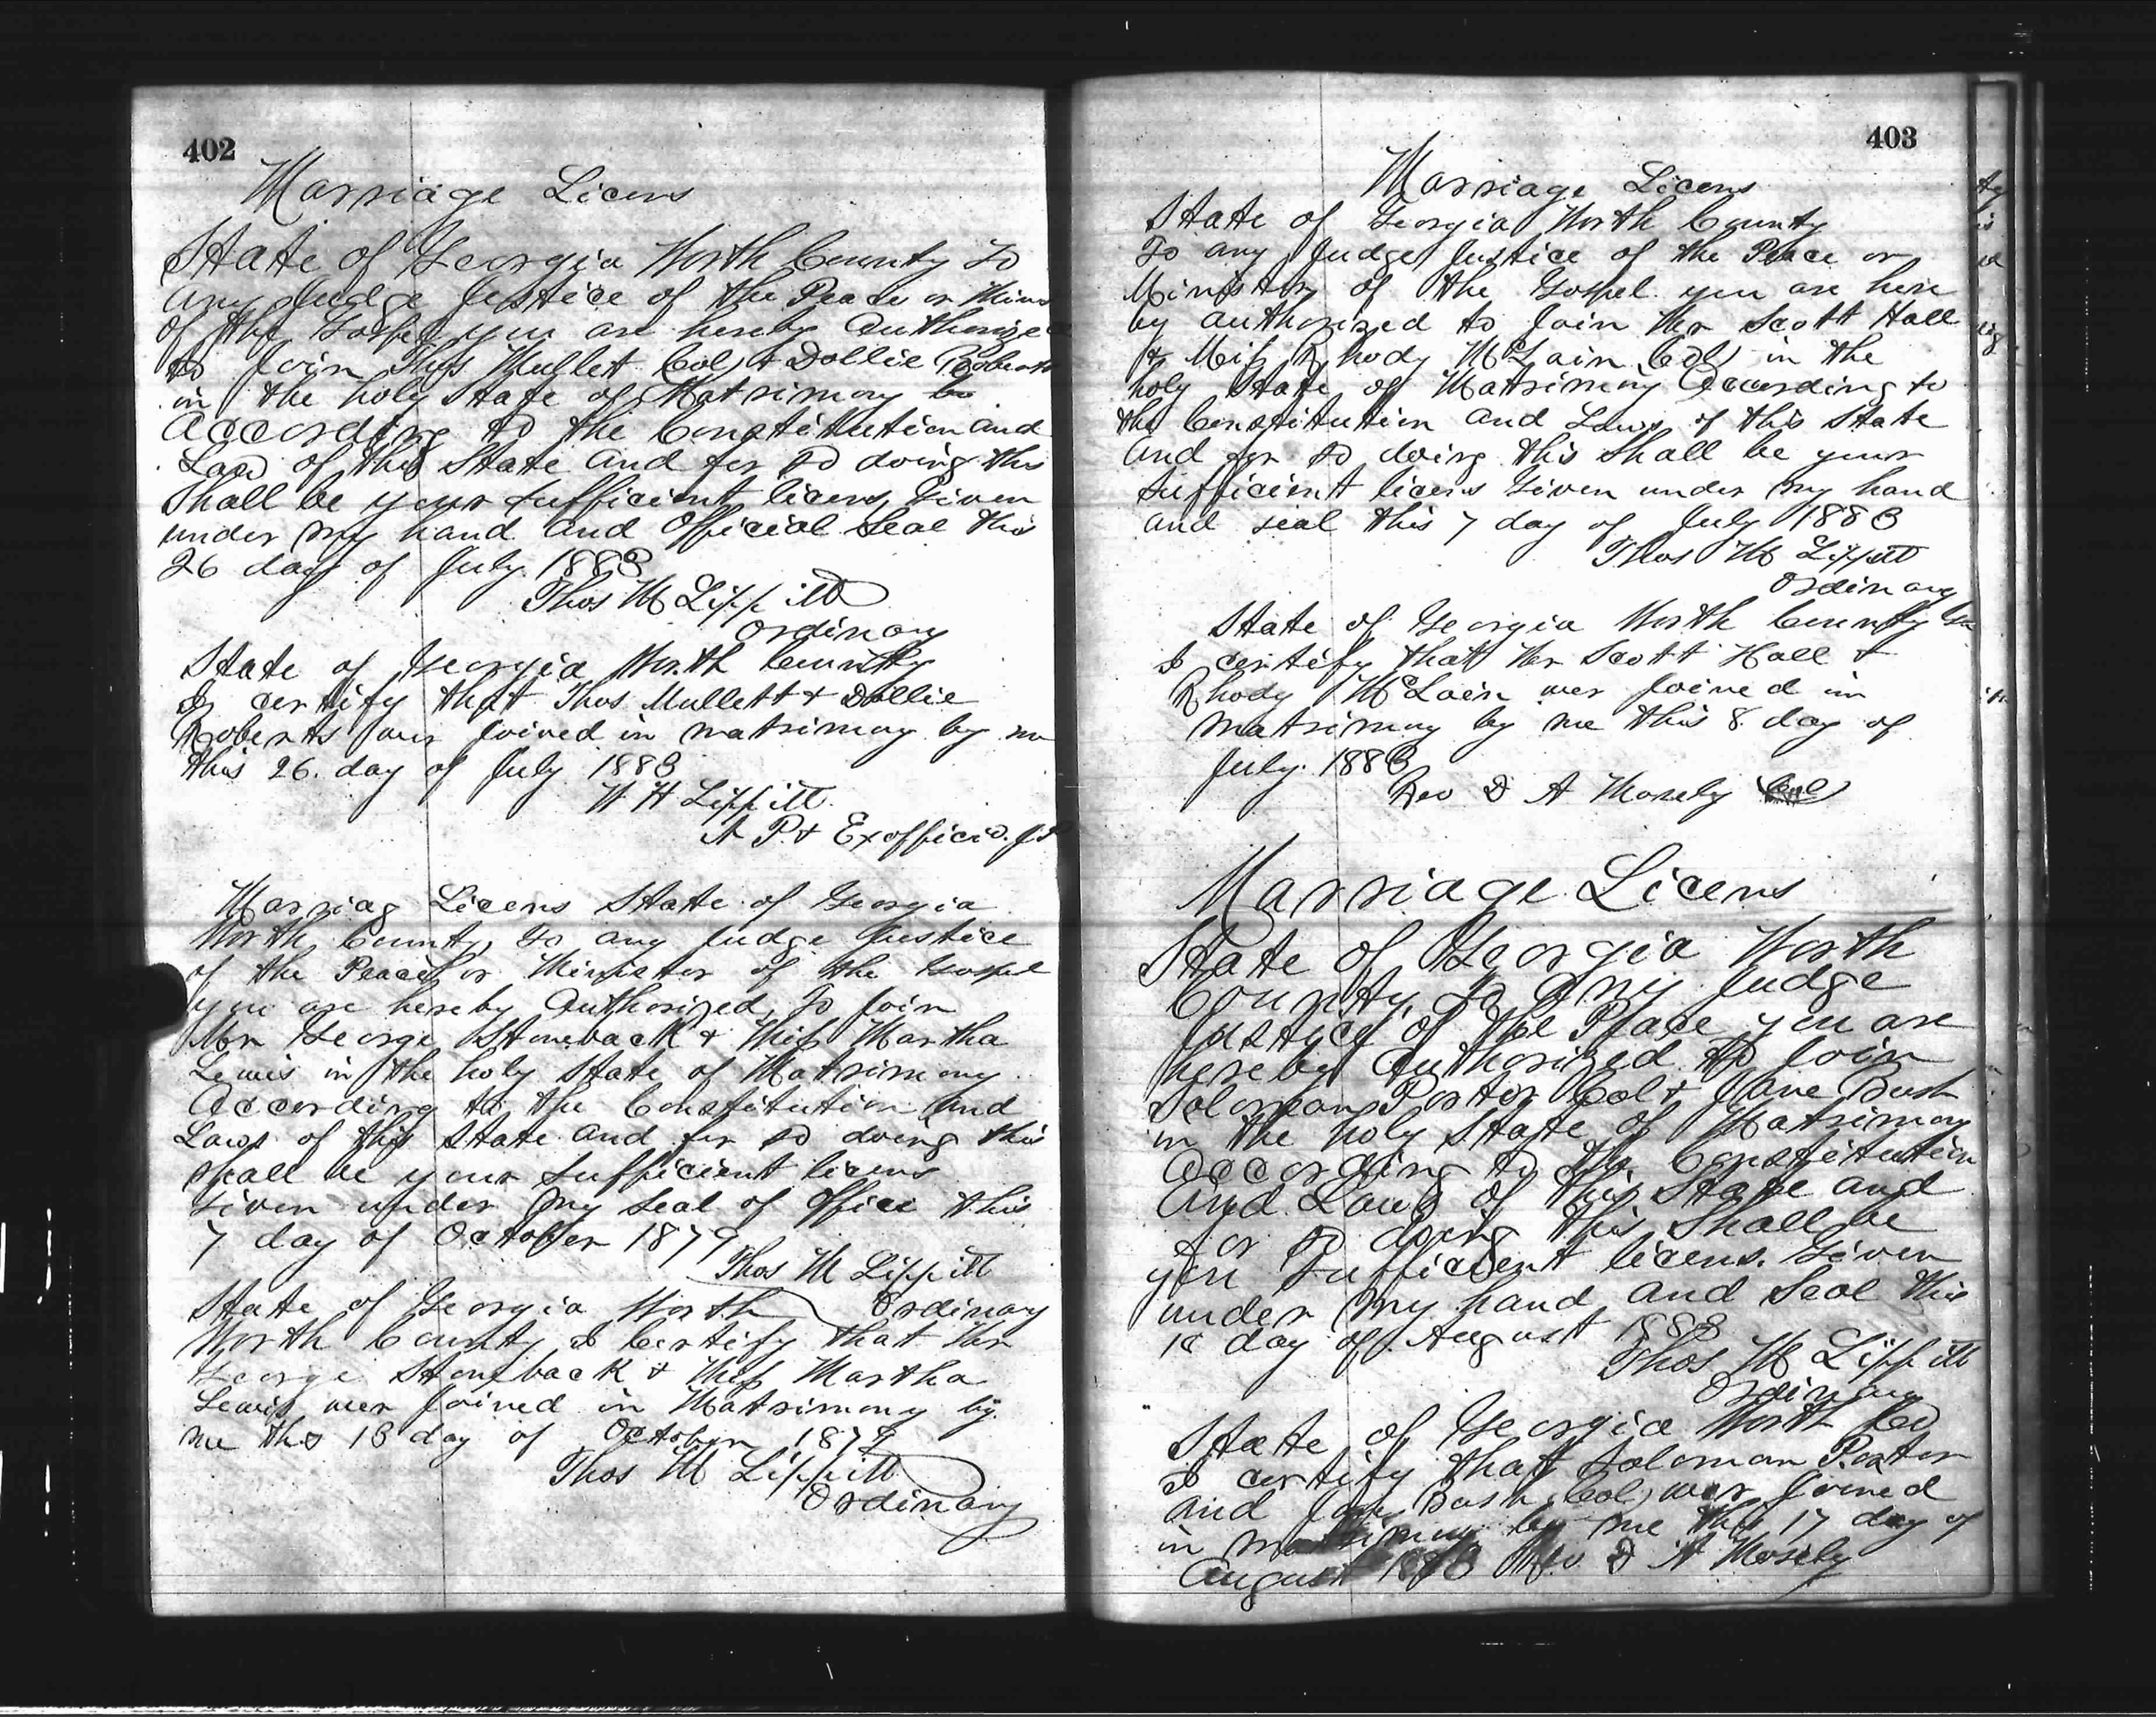 402
Marriage Licens
State of Georgia Worth County To
any Judge Justice of the Peace or Minis
of the Gospel you are hereby Authorize
to Join Thos Mullet Col & Dollie Roberts
in the holy State of Matrimony
According to the Constitution and
Law of this State and for so doing this
Shall be your sufficient licens, Given
under my hand and Official Seal this
26 day of July 1883
Thos M Lippitt
Ordinary
State of Georgia Worth County
I certify that Thos Mullett & Dollie
Roberts wer Joined in matrimony by me
this 26. day of July 1883
W H Lippitt
N P. & Exofficio. J P
Marriag Licens State of Georgia
Worth County, To any Judge Justice
of the Peace or Minister of the Gospel
you are hereby Authorized To Join
Mr George Stoneback & Miss Martha
Lewis in the holy State of Matrimony
According to the Constitution and
Laws of this State and for so doing this
shall be your sufficient licens
Given under my seal of office this
7 day of October 1879
Thos M Lippitt
Ordinary
State of Georgia Worth
Worth County I Certify that Mr
George Stoneback & Miss Martha
Lewis wer Joined in Matrimony by
me this day of October 187
Thos M Lippitt
Ordinary
403
Marriage Licens
State of Georgia Worth County
To any Judge Justice of the Peace or
Minister of the Gospel you are here
by authorized to Join Mr Scott Hall
& Miss Rhody McLain Col in the
holy State of Matrimony According to
the Constitution and Laws of this State
and for so doing this Shall be your
Sufficient licens Given under my hand
and seal this 7 day of July 1883
Thos M Lippitt
Ordinary
State of Georgia Worth County
I certify that Mr Scott Hall &
Rhody McLain wer Joined in
Matrimony by me this 8 day of
July. 1883
Rev D A Mosely Col
Marriage Licens
State of Georgia Worth
County, To Any Judge
Justice of the Peace you are
hereby Authorized to Join
Soloman Porter Col & Jane Bush
in the holy State of Matrimony
According to the Constitution
And Laws of this State and
for so doing this Shall be
you Sufficient licens. Given
under my hand and Seal this
day of August 1883
Thos M Lippitt
Ordinary
State of Georgia Worth Co
I certify that Soloman Porter
and Jane Bush Col, wer Joined
in matrimony by me this 17 day of
August 1883 Rev D A Mosely